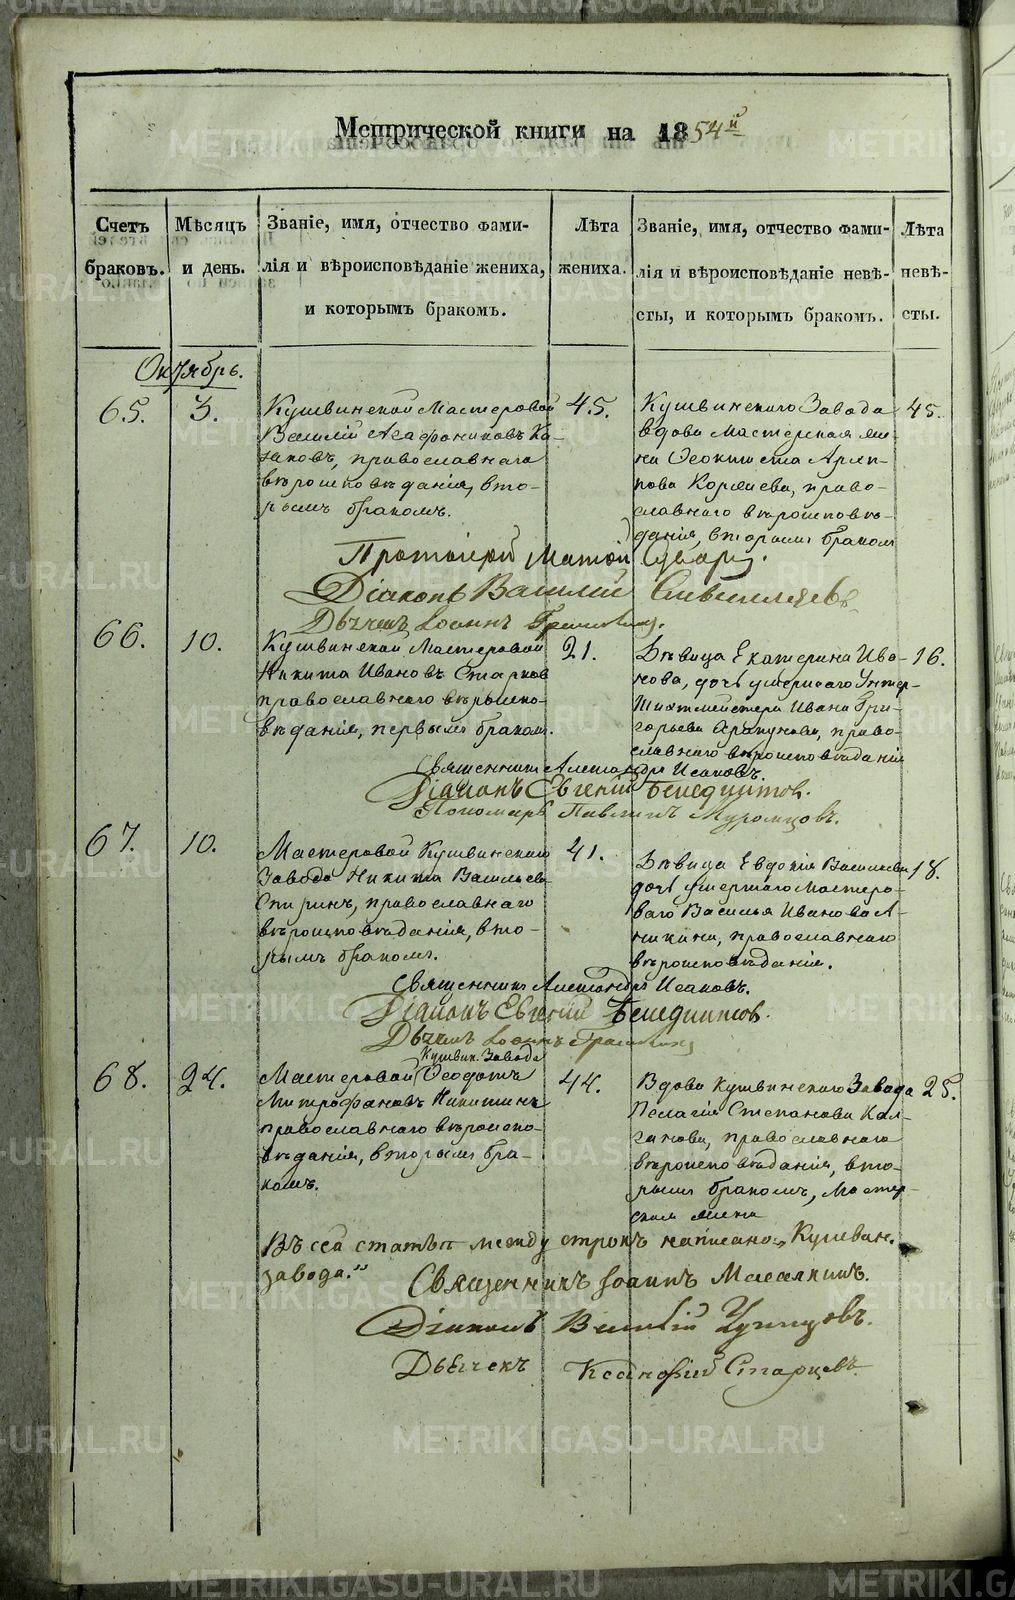 Метрической книги на 1854й
Счетъ браковъ.
Мѣсяцъ и день.
Званіе, имя, отчество фами-
лія и вѣроисповѣданіе жениха,
и которымъ бракомъ.
Лѣта жениха.
Званіе, имя, отчество фами-
лія и вѣроисповѣданіе невѣ-
сты, и которымъ бракомъ.
Лѣта невѣ-
сты.
Октябрь.
65.
3.
Кушвинской Мастеровой
Василій Агафониковъ Ка-
заковъ, православнаго
вѣроисповѣданія, вто-
рымъ бракомъ.
45.
Кушвинскаго Завода
вдова Мастерская же-
на Ѳеоктиста
православнаго вѣроисповѣ-
данія, вторымъ бракомъ
45.
Протоіерей
Діаконъ Василій
Дьячекъ Іоаннъ
66.
10.
Кушвинской Мастеровой
Никита Ивановъ Старков
православнаго вѣроиспо-
вѣданія, первымъ браком.
21.
Дѣвица Екатерина Ива-
нова, дочь умершаго Унтер-
Шихтмейстера Ивана Гри-
горьева право-
славнаго вѣроисповѣданія
16.
Священникъ Александръ Исаковъ.
Діаконъ Евгеній Бенедиктов.
Пономарь Павлинъ Муромцовъ.
67.
10.
Мастеровой Кушвинскаго
Завода Никита Васильевъ
православнаго
вѣроисповѣданія, вто-
рымъ бракомъ.
41.
Дѣвица Евдокія Васильева
дочь умершаго Мастеро-
ваго Василья Иванова А-
никина, православнаго
вѣроисповѣданія.
18.
Священникъ Александръ Исаковъ.
Діаконъ Евгеній Бенедиктов.
Дьячекъ Іоаннъ
68.
24.
Кушвин. Завода
Мастеровой Ѳеодотъ
Митрофановъ Никитинъ
православнаго вѣроиспо-
вѣданія, вторымъ бра-
комъ.
44.
Вдова Кушвинскаго Завода
Пелагія Степанова Кал-
ганова, православнаго
вѣроисповѣданія, вто-
рымъ бракомъ, Мастер-
ская жена
25.
Въ сей статьѣ между строкъ написано „Кушвин.
завода.“
Священникъ Іоаннъ
Діаконъ Василій
Дьячекъ Ксанофій Старцевъ
METRIKI.GASO-URAL.RU